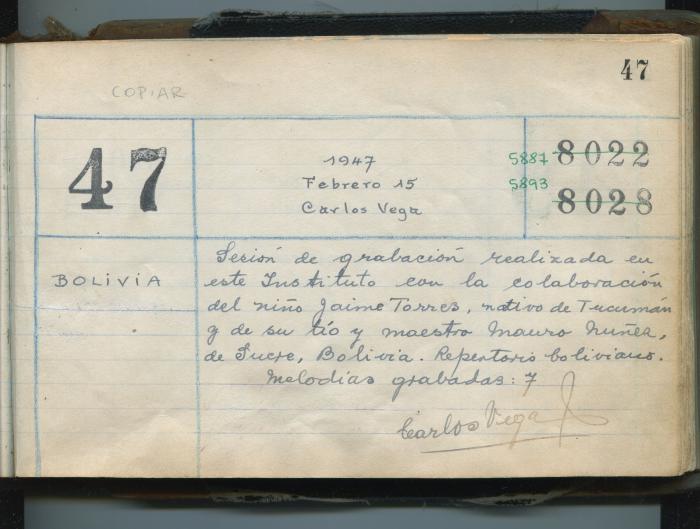 47
COPIAR
47
1947
Febrero 15
Carlos Vega
5887 8022
5893 8028
BOLIVIA
Sesión de grabación realizada en
este Instituto con la colaboración
del niño Jaime Torres, nativo de Tucumán
y de su tío y maestro Mauro Nuñez,
de Sucre, Bolivia. Repertorio boliviano.
Melodías grabadas: 7
Carlos Vega